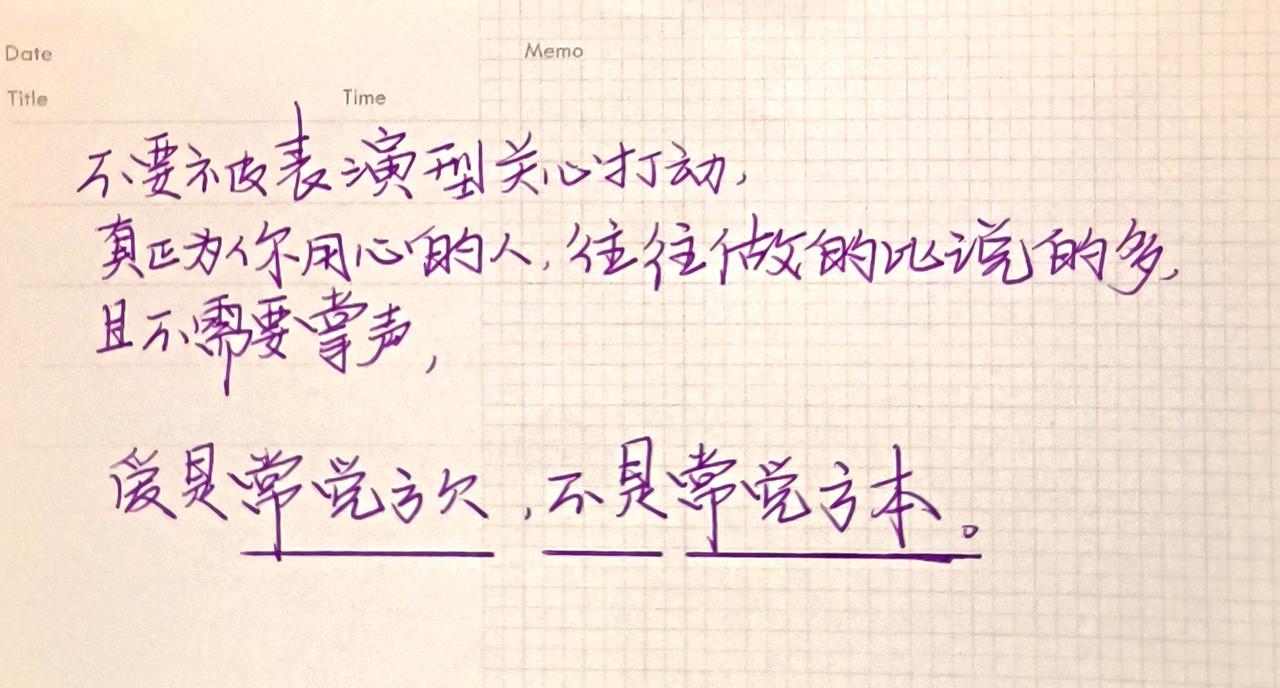 Date
Memo
Title
Time
不要被表演型关心打动,
真正为你用心的人,往往做的比说的多,
且不需要掌声,
爱是常觉亏欠,不是常觉亏本。